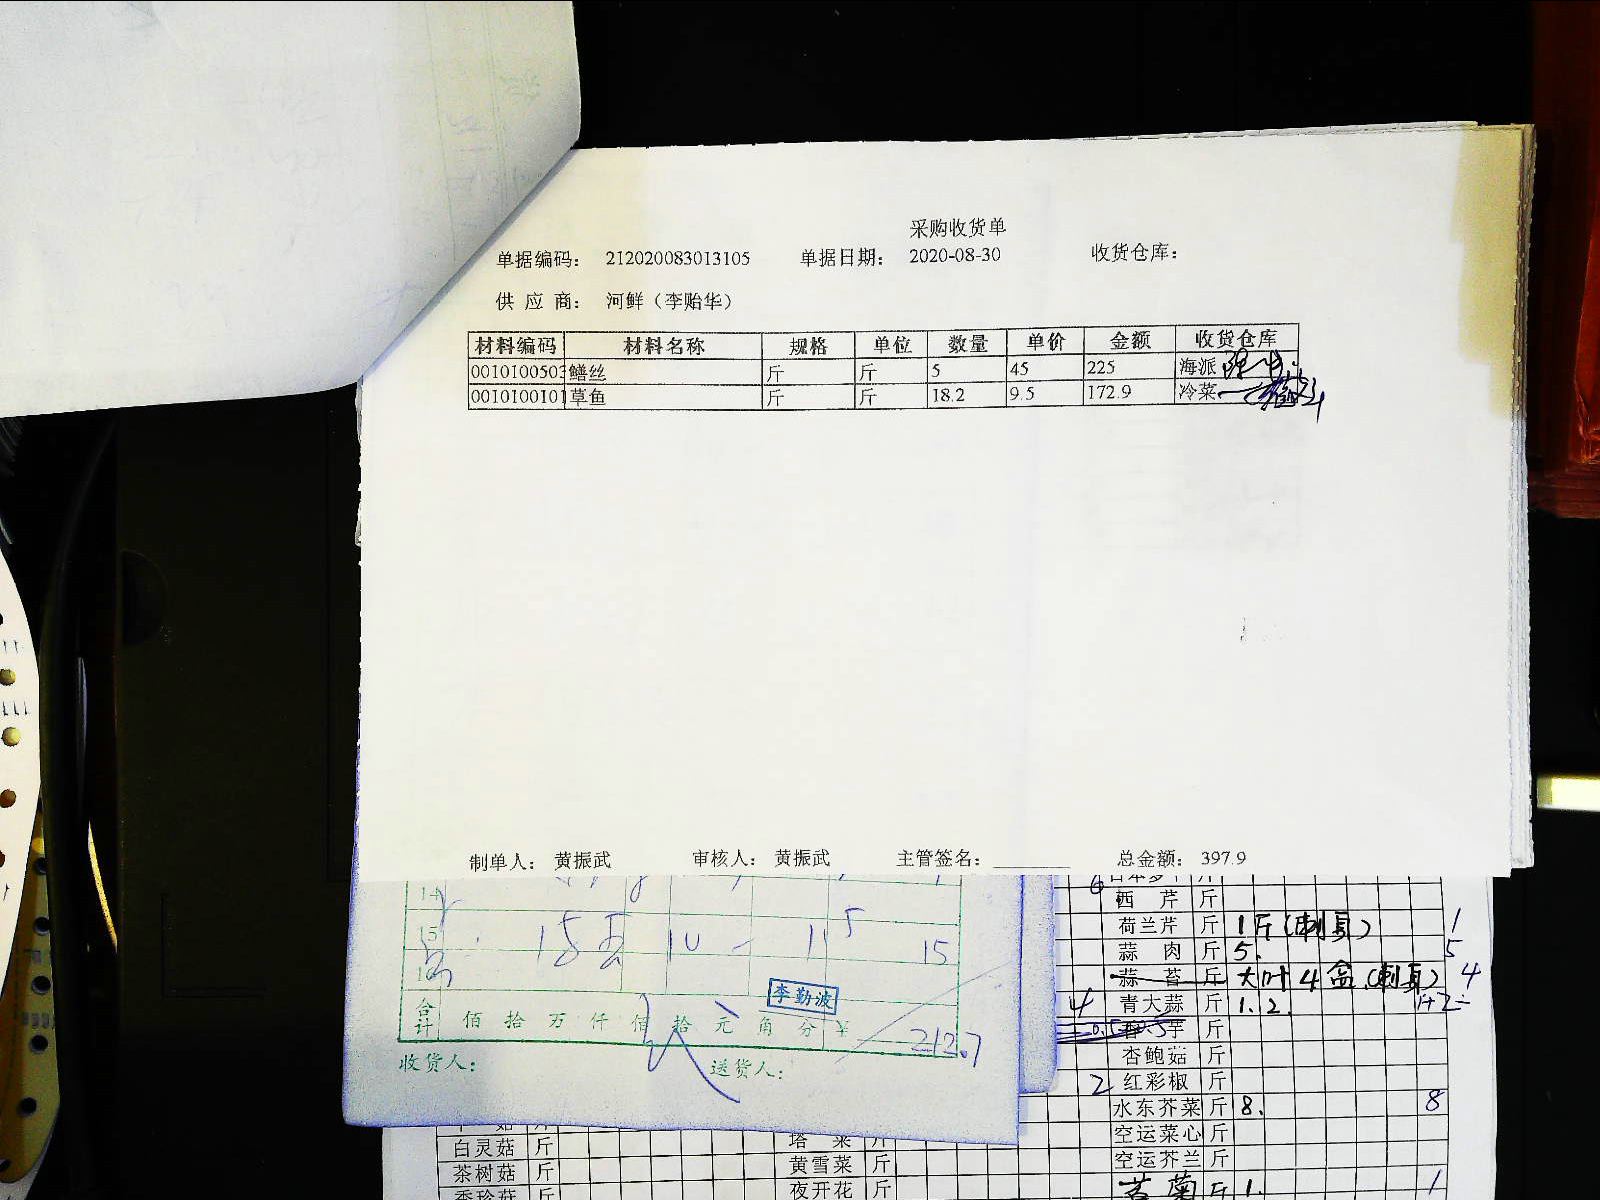 采购收货单
单据编码： 212020083013105 单据日期： 2020-08-30 收货仓库：
供 应 商： 河鲜（李贻华）
材料编码 材料名称 规格 单位 数量 单价 金额 收货仓库
0010100503 鳝丝 斤 斤 5 45 225 海派
0010100101 草鱼 斤 斤 18.2 9.5 172.9 冷菜
制单人： 黄振武 审核人： 黄振武 主管签名： 总金额： 397.9
14
15 15
李勤波
合计 佰 拾 万 仟 佰 拾 元 角 分 ¥ 212.7
收货人： 送货人：
6
西 芹 斤
荷兰芹 斤 1斤(刺身) 1
蒜 肉 斤 5. 5
蒜 苔 斤 大叶4盒(刺身) 4
4 青大蒜 斤 1.2.
芋 斤
杏鲍菇 斤
2 红彩椒 斤
水东芥菜 斤 8. 8
空运菜心 斤
空运芥兰 斤
斤 1. 1
白灵菇 斤
茶树菇 斤
塔 菜 斤
黄雪菜 斤
夜开花 斤